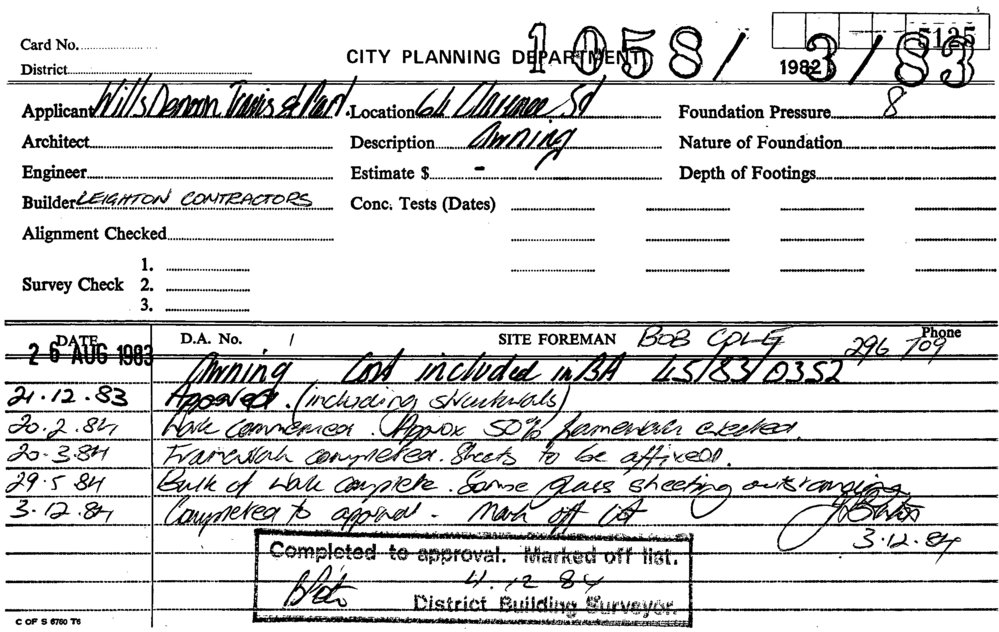 Card No.
District
CITY PLANNING DEPARTMENT
1058/3/83
5125
1982
Applicant Wills Denoon Travis & Part. Location 64 Clarence St Foundation Pressure 8
Architect Description Awning Nature of Foundation
Engineer Estimate $ - Depth of Footings
Builder LEIGHTON CONTRACTORS Conc. Tests (Dates)
Alignment Checked
Survey Check 1.
2.
3.
DATE D.A. No. / SITE FOREMAN BOB COLE Phone 296 709
26 AUG 1983 Awning Cost included in BA 45/83/0352
21.12.83 Approved. (including structurals)
20.2.84 Work commenced. Approx 50% framework erected.
20.3.84 Framework completed. Sheets to be affixed.
29.5.84 Bulk of work complete. Some glass sheeting outstanding
3.12.84 Completed to approval - Mark off list
3.12.84
Completed to approval. Marked off list.
4.12.84
District Building Surveyor.
C OF S 6760 T6